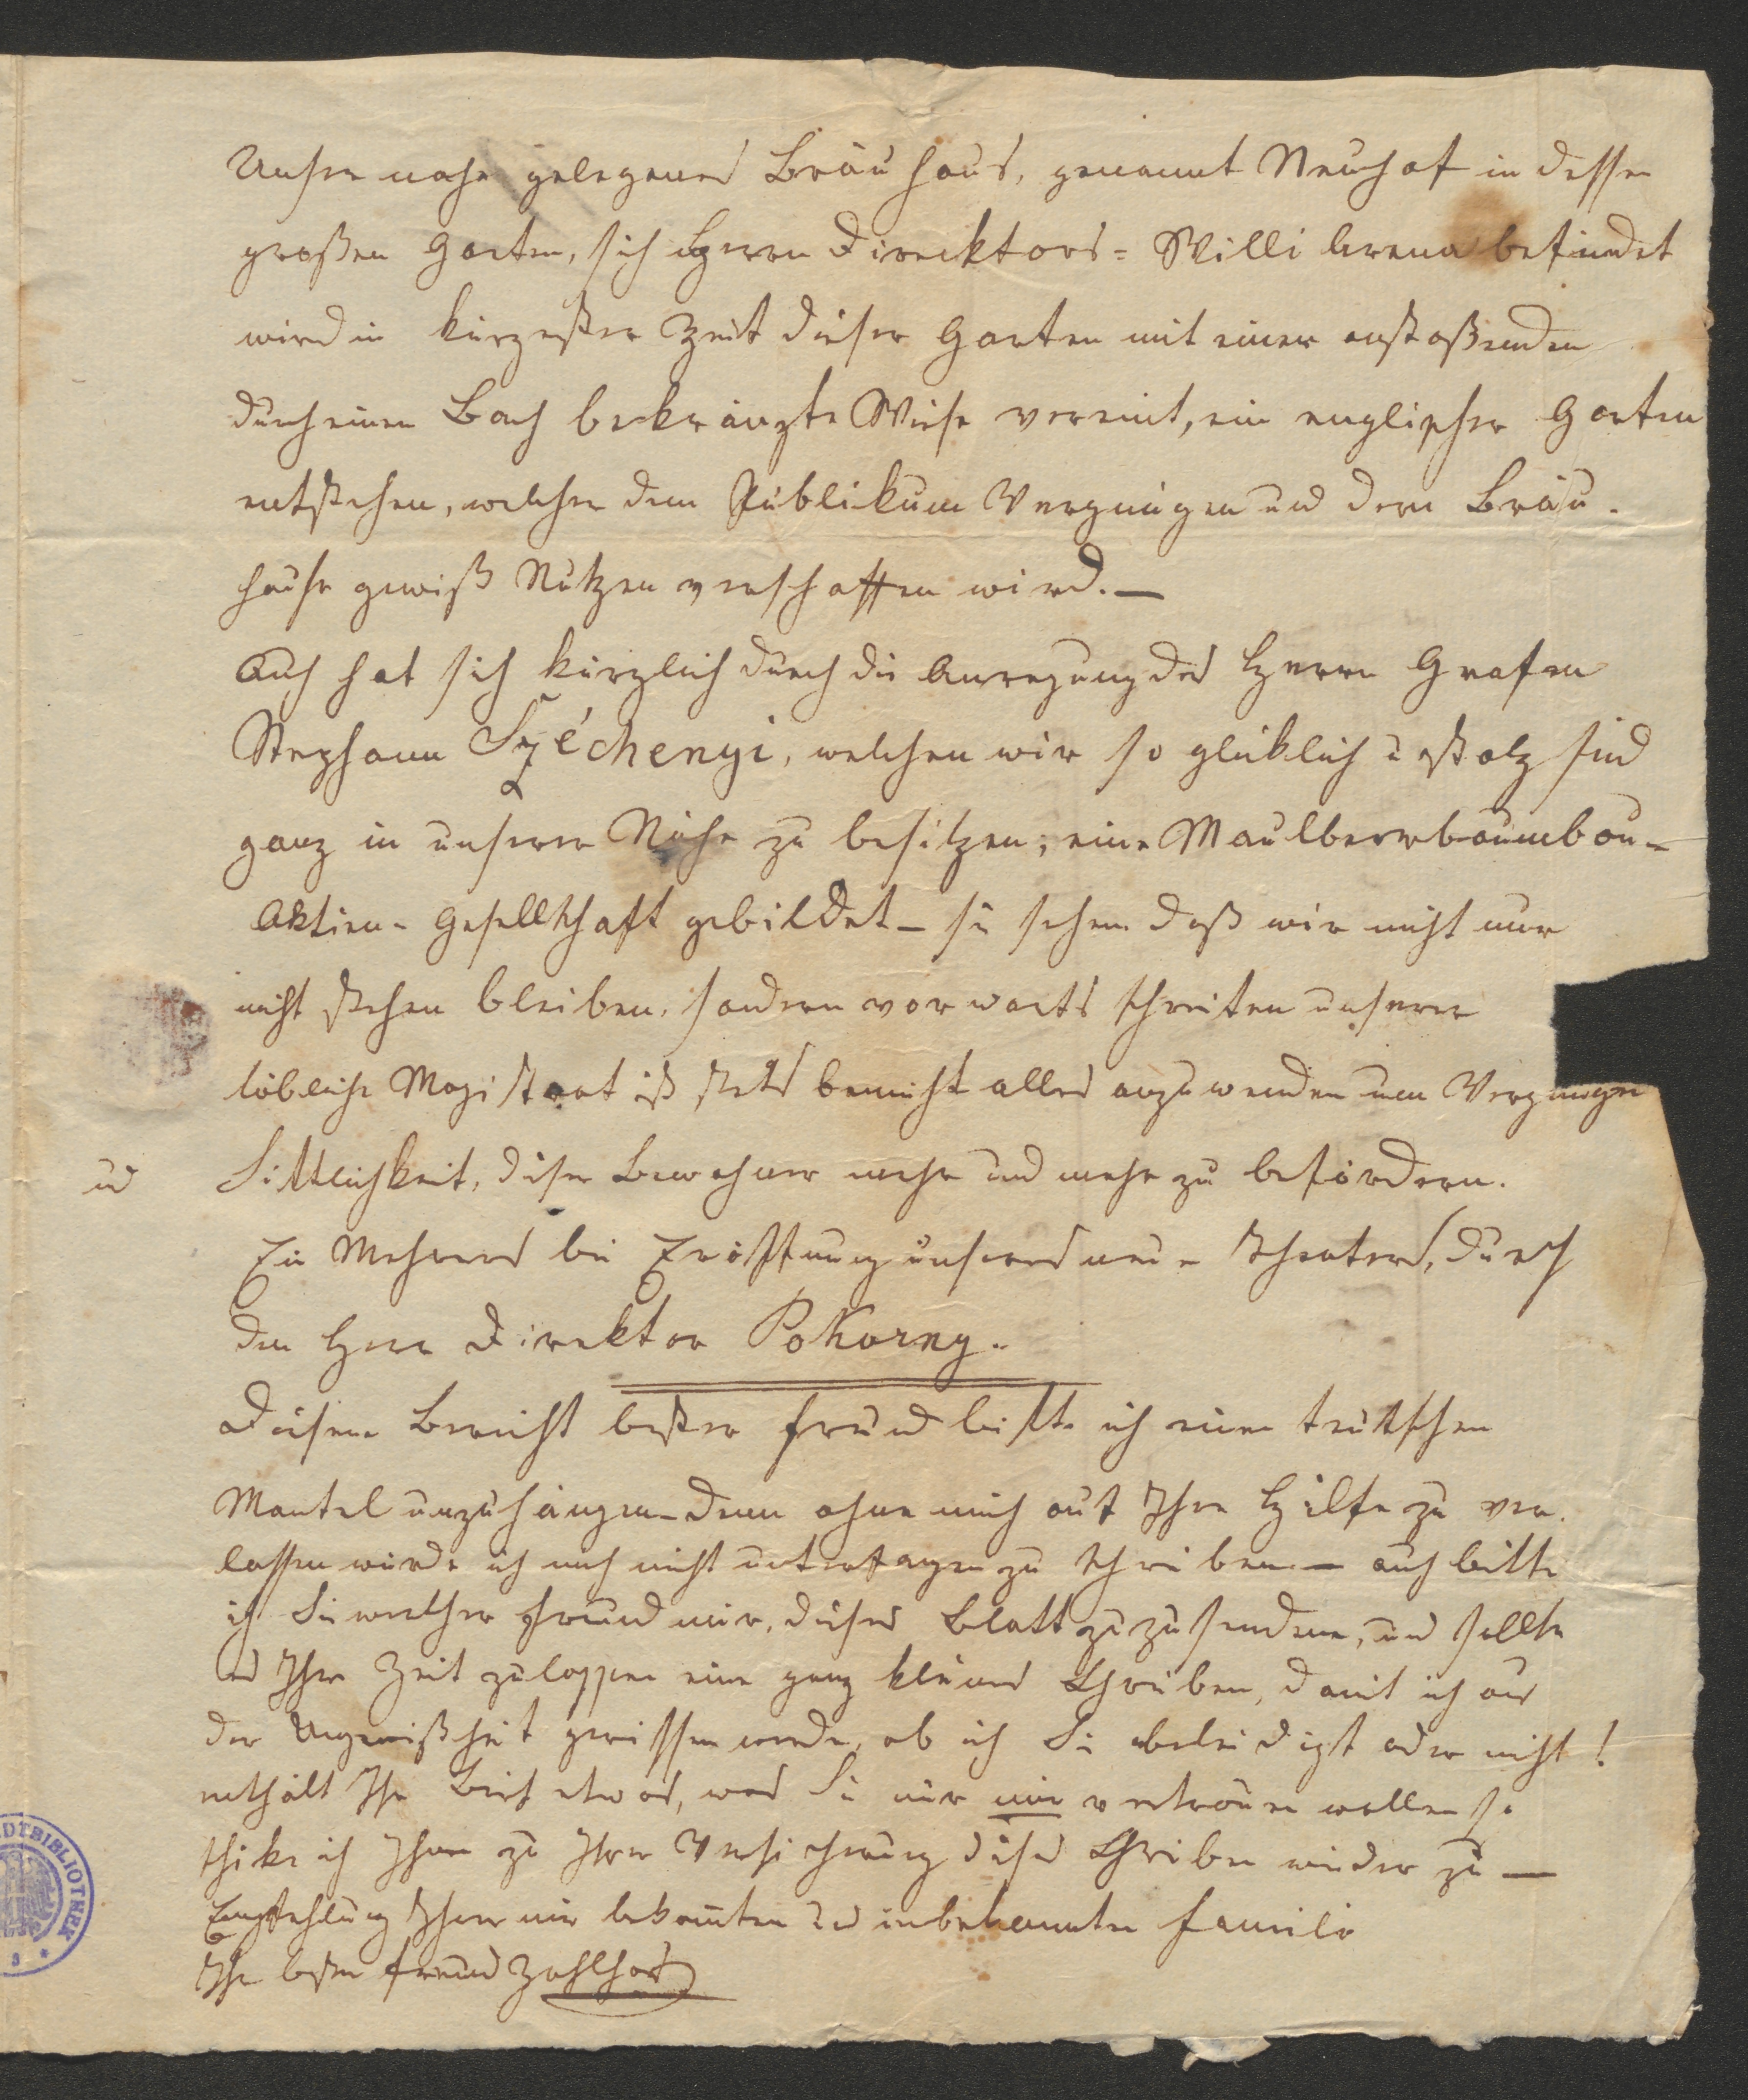 Unser nahe gelegenes Bräuhaus, genannt Neuhof in dessen
großen Garten, sich Herrn Direcktors = Willi Arena befindet
wird in kürzester Zeit dieser Garten mit einer anstoßenden
durch einen Bach bekränzte Wiese vereint, ein englischer Garten
entstehen, welcher dem Publikum Vergnügen und dem Bräu-
hause gewiß Nutzen verschaffen wird. —
Auch hat sich kürzlich durch die Anregung des Herrn Grafen
Stephann Széchenyi, welchen wir so glüklich u stolz sind
ganz in unserer Nähe zu besitzen; eine Maulberrbaumbau-
Aktien-Gesellschaft gebildet – sie sehen daß wir nicht nur
nicht stehen bleiben, sondern vorwärts schreiten unserer
löbliche Magistrat ist stets bemüht alles anzuwenden um Vergnügen
ud Sittlichkeit, diser Bewohner mehr und mehr zu befördern.
Ein Mehreres bei Eröffnung unseres neuen Theaters, durch
den Herr Direktor Pokorny.
Diesem Bericht bester Freund bitte ich einen teutschen
Mantel umzuhängen – denn ohne mich auf Ihre Hilfe zu ver-
lassen würde ich mich nicht unterfangen zu schreiben — auch bitte
ich Sie werther Freund mir, dieses Blatt zuzusenden, und sollte
es Ihre Zeit zulassen ein ganz kleines Schreiben, damit ich aus
der Ungewißheit gerissen werde, ob ich Sie beleidigt oder nicht!
enthält Ihr Brief etwas, was Sie mir nur vertrauen wollen so
schike ich Ihnen zu Ihrer Versicherung dises Schreiben wieder zu —
Empfehlung Ihrer mir bekannten ud unbekannten Familie
Ihr bester Freund Zahlhas